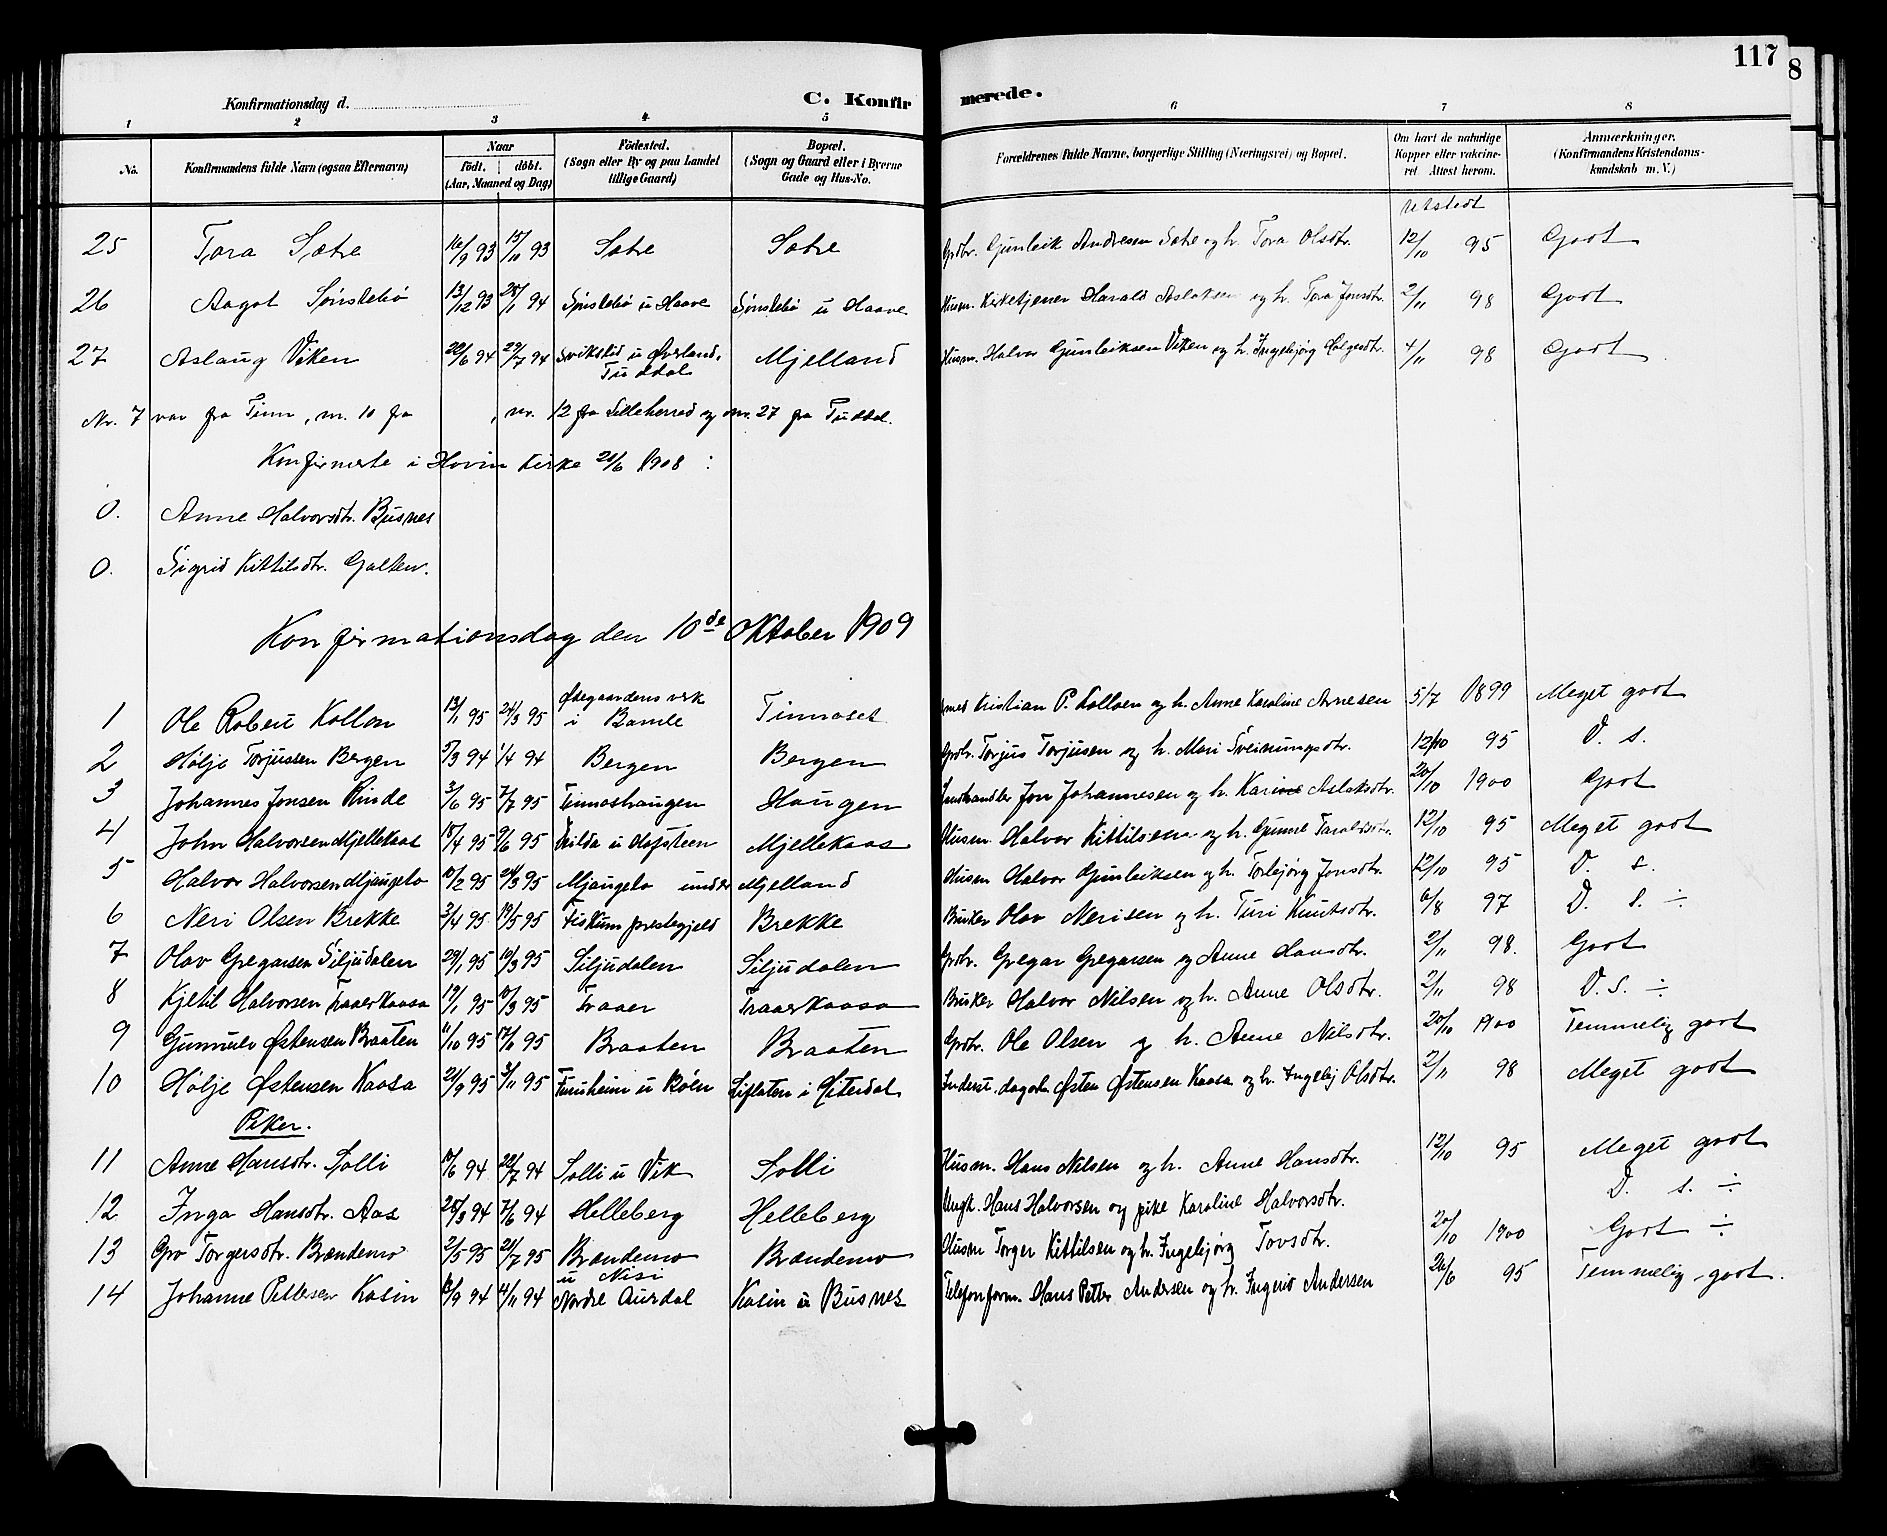 117
8
Konfirmationsdag d. C. Konfirmerede.
1 2 3 4 5 6 7 8
No. Konfirmandens fulde Navn (ogsaa Efternavn) Naar födt. döbt. (Aar, Maaned og Dag) Födested. (Sogn eller By og paa Landet tillige Gaard) Bopæl. (Sogn og Gaard eller i Byerne Gade og Hus-No. Forældrenes fulde Navne, borgerlige Stilling (Næringsvei) og Bopæl. Om havt de naturlige Kopper eller vaksineret Attest herom. Anmærkninger. (Konfirmandens Kristendomskundskab m. V.)
utstedt
25 Tora Sætre 16/9 93 15/11 93 Sætre Sætre Grdbr. Gunleik Andresen Sætre og h. Tora Olsdtr. 12/10 95 Godt
26 Aagot Sønstebø 13/12 93 28/1 94 Sønstebø u Haave Sønstebø u Haave Husm. Kirketjener Harald Aslaksen og h. Tora Jonsdtr. 2/11 98 Godt
27 Aslaug Viken 20/6 94 29/7 94 u Øverland, Tuddal Mjelland Husm. Halvor Gunleiksen Viken og h. Ingebjørg 4/11 98 Godt
Nr. 7 var fra Tinn, nr. 10 fra , nr. 12 fra Lilleherred og nr. 27 fra Tuddal.
Konfirmerte i Hovin kirke 21/6 1908 :
0. Anne Halvorsdtr. Busnes
0. Sigrid Kittilsdtr. Galten.
Konfirmationsdag den 10de Oktober 1909
1 Ole Robert Kollen 13/1 95 24/3 95 Ødegaardens verk i Bamle Tinnoset Kristian P. Kolloen og h. Anne Karoline Arnesen 5/7 1899 Meget godt
2 Hølje Torjussen Bergen 5/3 94 1/4 94 Bergen Bergen Grdbr. Torjus Torjusen og h. Mari Sveinungsdtr. 12/10 95 D. s.
3 Johannes Jonsen Rinde 3/6 95 7/7 95 Tinnoshaugen Haugen Jon Johannesen og h. Karine Aslaksdtr. 20/10 1900 Godt
4 John Halvorsen Mjellekaas 18/4 95 9/6 95 u Hofsteen Mjellekaas Husm Halvor Kittilsen og h. Gunne Taraldsdtr. 12/10 95 Meget godt
5 Halvor Halvorsen Mjaugeto 10/2 95 24/3 95 Mjaugeto under Mjelland Husm Halvor Gunleiksen og h. Torbjørg Jonsdtr. 12/10 95 D. s.
6 Neri Olsen Brekke 3/4 95 19/5 95 Fiskum prestegjeld Brekke Bruker Olav Nerisen og h. Turi Knutsdtr. 6/8 97 D. s. ÷
7 Olav Gregarsen Siljudalen 29/1 95 10/3 95 Siljudalen Siljudalen Grdbr. Gregar Gregarsen og Anne Hansdtr. 2/11 98. Godt
8 Kjetil Halvorsen Traaerkaasa 19/1 95 10/3 95 Traaer Traaerkaasa Bruker Halvor Nilsen og h. Anne Olsdtr. 2/11 98 D. s. ÷
9 Gunnulv Østensen Braaten 11/10 95 17/11 95 Braaten Braaten Grdbr. Ole Olsen og h. Anne Nilsdtr. 20/10 1900 Temmelig godt
10 Hølje Østensen Kaasa 21/9 95 3/11 95 u Bøen i Hiterdal Inderst. dagarb. Østen Østensen Kaasa og h. Ingebj Olsdtr. 2/11 98 Meget godt
Piker.
11 Anne Hansdtr. Solli 10/6 94 22/7 94 Solli u Vik Solli Husm. Hans Nilsen og h. Anne Hansdtr. 12/10 95 Meget godt
12 Inga Hansdtr. Aas 28/3 94 7/6 94 Helleberg Helleberg Ungk. Hans Halvorsen og pike Karoline Halvorsdtr. D. s. ÷
13 Gro Torgersdtr. Brændemo 2/5 95 21/7 95 Brændemo u Nisi Brændemo Husm Torger Kittilsen og h. Ingebjørg Tovsdtr. 20/10 1900 Godt ÷
14 Johanne Pettersen Kasin 6/9 94 4/11 94 Nordre Aurdal Kasin u Busnes Telefonform. Hans Petter Andersen og h. Ingrid Andersen 26/6 95 Temmelig godt.